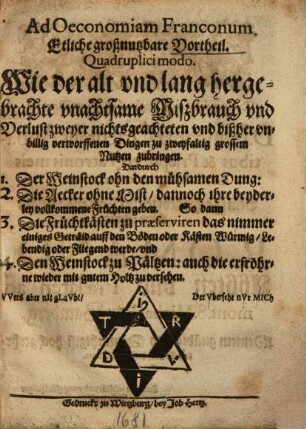 Ad Oeconomiam Franconum
Etliche großnutzbare Vortheil.
Quadruplici modo.
Wie der alt vnd lang herge-
brachte vnachtsame Miszbrauch vnd
Verlust zweyer nichts geachteten vnd bißher vn-
billig verworffenen Dingen zu zweyfaltig grossem
Nutzen zubringen.
Dardurch
1. Der Weinstock ohn den mühsamen Dung:
2. Die Aecker ohne Mist / dannoch ihre beyder-
ley vollkommene Früchten geben. So dann
3. Die Früchtkästen zu præserviren das nimmer
einiges Geträid auff den Böden oder Kästen Würmig / Le-
bendig oder Fliegend werde / vnd
4. Den Weinstock zu Pältzen: auch die erfröhr-
ne wieder mit gutem Holtz zu versehen.
VVers aber nIt gLaVbt /
Der Vbersehe nVr MICh
I
T R
D V
I
Gedruckt zu Würtzburg / bey Job Hertz.
1681